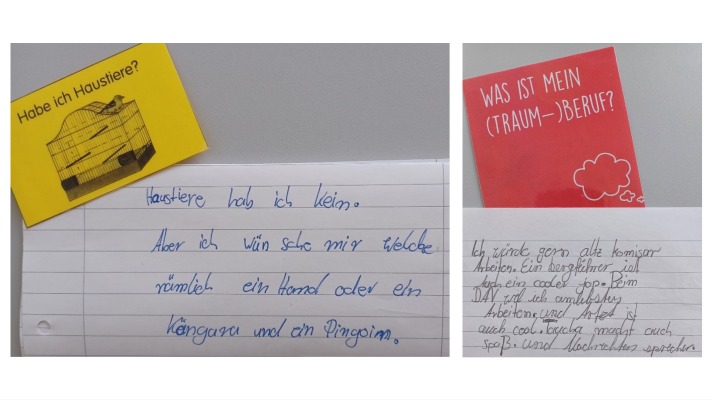 Habe ich Haustiere?
Haustiere hab ich kein.
Aber ich wün sche mir welche
nämlich ein Hund oder ein
Kängaru und ein Pingoin.
WAS IST MEIN
(TRAUM-)BERUF?
Ich würde gern altz komisar
Arbeiten. Ein bergführer ist
auch ein cooler jop. Beim
DAV will ich
Arbeiten. und ist
auch cool. macht auch
spaß. und Nachrichten sprecher.